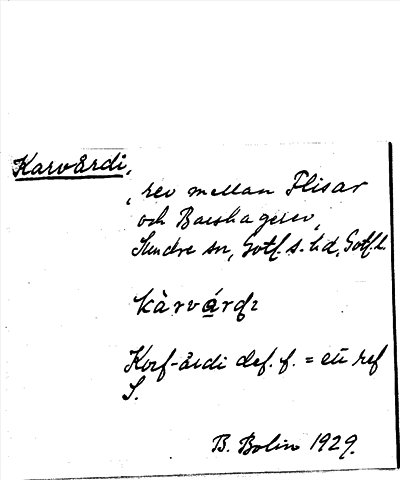 Karvårdi,
, rev mellan Flisar
och Barshageudd,
Sundre sn, Gotl. s. hd, Gotl. l.
kàrvá̱rdɩ
Korf-årdi def. f. = ett ref
S.
B. Bolin 1929.